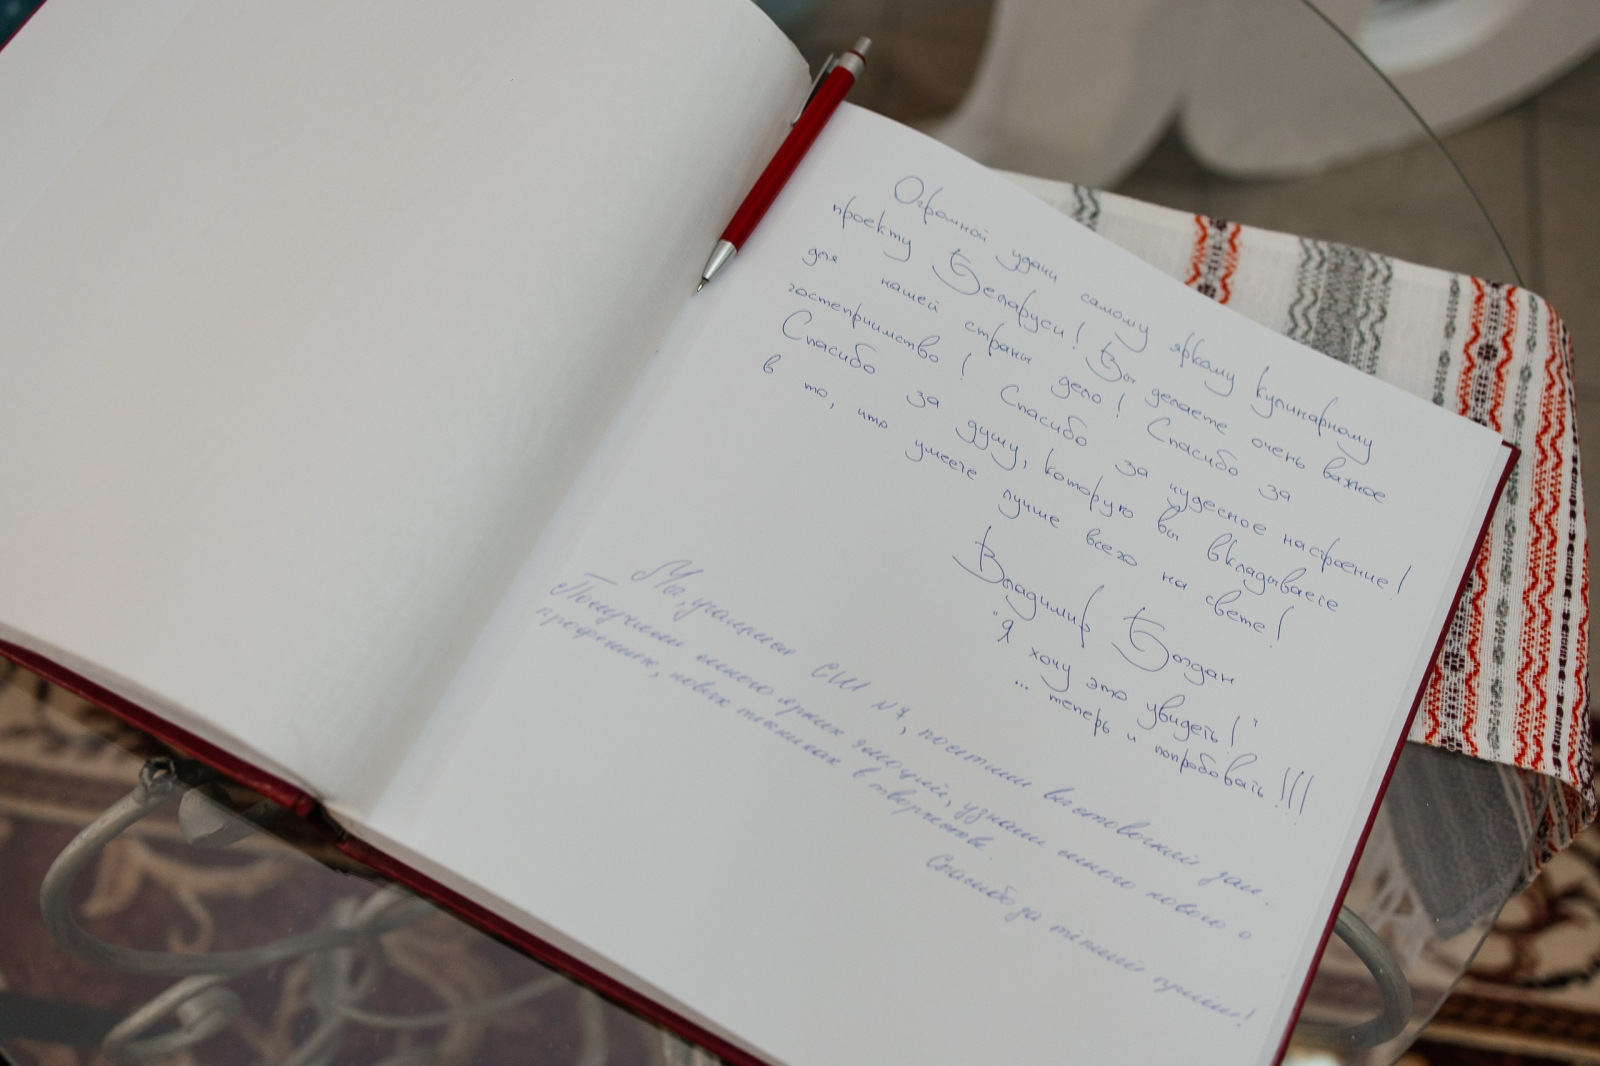 Огромной удачи самому яркому кулинарному
проекту Беларуси! Вы делаете очень важное
для нашей страны дело! Спасибо за
гостеприимство! Спасибо за чудесное настроение!
Спасибо за душу, которую вы вкладываете
в то, что умеете лучше всего на свете!
Владимир Богдан
"Я хочу это увидеть!"
... теперь и попробовать!!!
Мы, учащиеся СШ №7, посетили выставочный зал.
Получили много ярких эмоций, узнали много нового о
профессиях, новых техниках в творчестве.
Спасибо за тёплый приём!